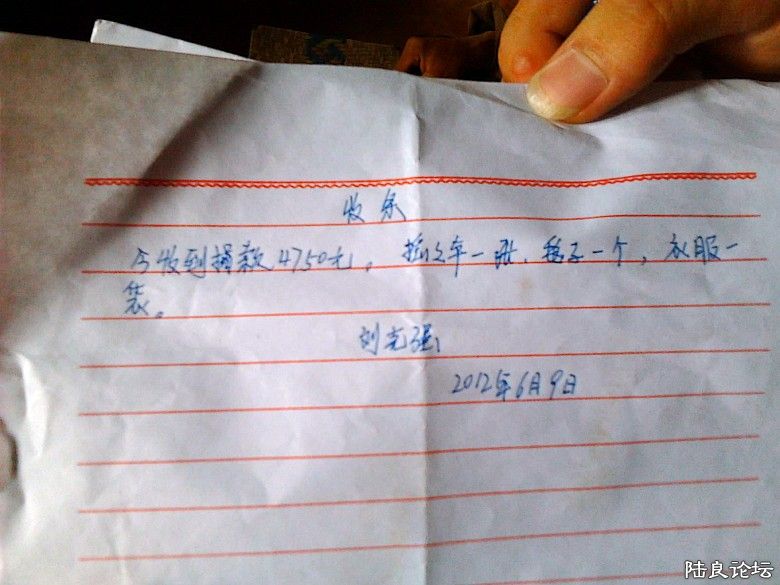 收条
今收到捐款4750元。摇么车一张、毯子一个,衣服一
袋。
刘克强
2012年6月9日
陆良论坛